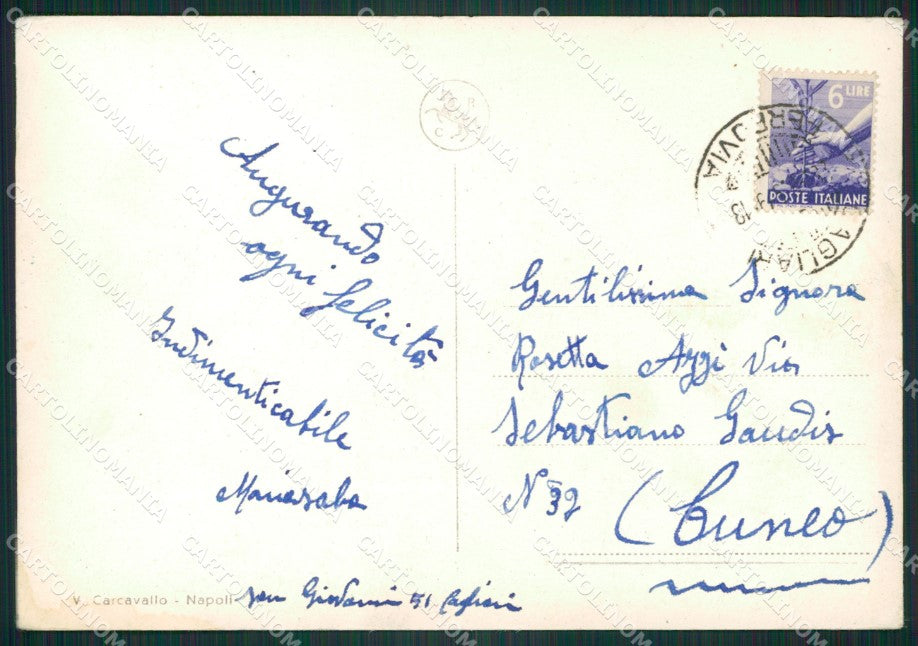 Augurando
ogni felicità
Indimenticabile
V. Carcavallo - Napoli
San Giovanni 51 Cagliari
R
C
6 LIRE
POSTE ITALIANE
CAGLIARI
FERROVIA
Gentilissima Signora
Rosetta Azzi Via
Sebastiano Gaudis
N 32
(Cuneo)
CARTOLINOMANIA